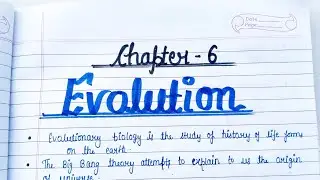 Date
Page
Chapter - 6
Evalution
• Evolutionary biology is the study of history of life forms
on the earth.
• The Big Bang theory attempts to explain to us the origin
of universe.